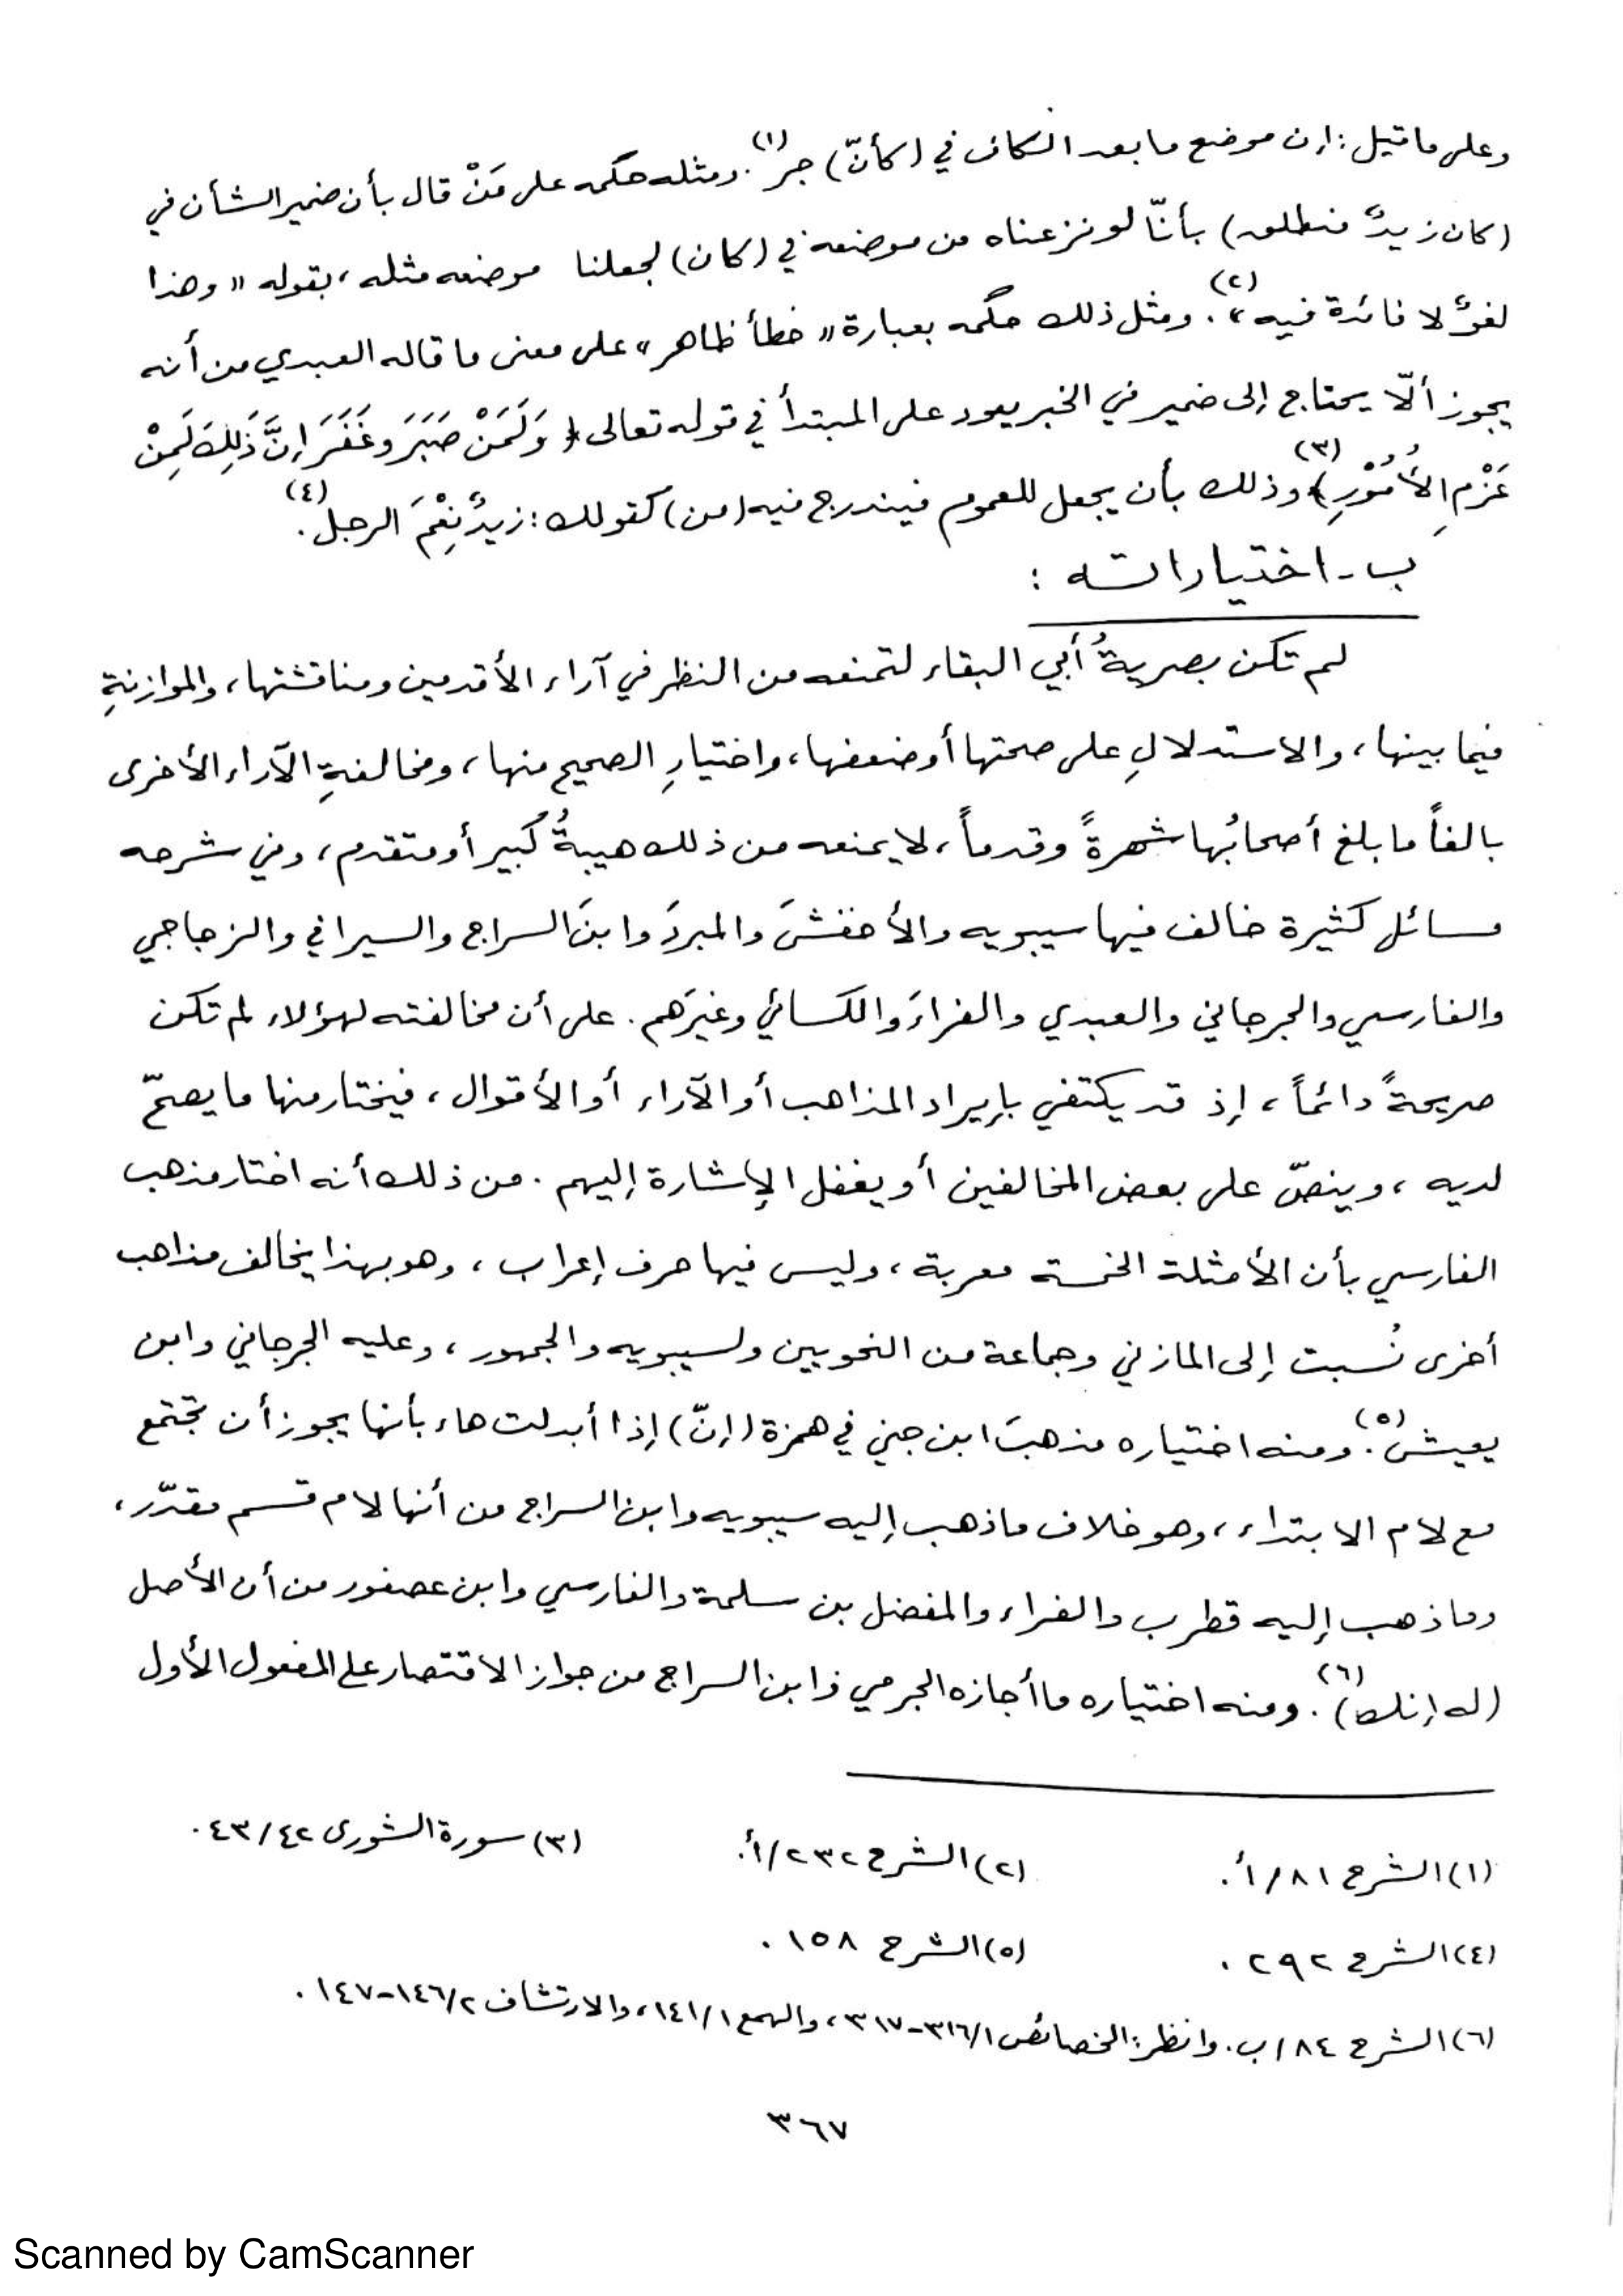 وعلى ما قيل : إن موضع ما بعد الكاف في (كأنّ) جر(١). ومثله حكمه على مَنْ قال بأن ضمير الشأن في
(كان زيدٌ منطلق) بأنّا لو نزعناه من موضعه في (كان) لجعلنا موضعه مثله، بقوله « وهذا
لغوٌ لا فائدة فيه »(٢). ومثل ذلك حكمه بعبارة « خطأ ظاهر » على معنى ما قاله العبدي من أنه
يجوز ألّا يحتاج إلى ضمير في الخبر يعود على المبتدأ في قوله تعالى ﴿ وَلَمَنْ صَبَرَ وغَفَرَ إنَّ ذَلِكَ لَمِنْ
عَزْمِ الأُمُوْرِ ﴾(٣) وذلك بأن يجعل للعموم فيندرج فيه (من) كقولك : زيدٌ نِعْمَ الرجل(٤).
ب - اختياراته :
لم تكن بصريةُ أبي البقاء لتمنعه من النظر في آراء الأقدمين ومناقشتها، والموازنةِ
فيما بينها، والاستدلالِ على صحتها أو ضعفها، واختيارِ الصحيح منها، ومخالفةِ الآراء الأخرى
بالغاً ما بلغ أصحابُها شهرةً وقدماً، لا يمنعه من ذلك هيبةُ كبير أو متقدم، وفي شرحه
مسائل كثيرة خالف فيها سيبويه والأخفشَ والمبردَ وابنَ السراج والسيرافي والزجاجي
والفارسي والجرجاني والعبدي والفراءَ والكسائي وغيرَهم. على أن مخالفته لهؤلاء لم تكن
صريحةً دائماً، إذ قد يكتفي بإيراد المذاهب أو الآراء أو الأقوال، فيختار منها ما يصحّ
لديه، وينصّ على بعض المخالفين أو يغفل الإشارة إليهم. من ذلك أنه اختار مذهب
الفارسي بأن الأمثلة الخمسة معربة، وليس فيها حرف إعراب، وهو بهذا يخالف مذاهب
أخرى نُسبت إلى المازني وجماعة من النحويين ولسيبويه والجمهور، وعليه الجرجاني وابن
يعيش(٥). ومنه اختياره مذهبَ ابن جني في همزة (إنّ) إذا أبدلت هاء بأنها يجوز أن تجتمع
مع لام الابتداء، وهو خلاف ما ذهب إليه سيبويه وابن السراج من أنها لام قسم مقدّر،
وما ذهب إليه قطرب والفراء والمفضل بن سلمة والفارسي وابن عصفور من أن الأصل
(له إنك)(٦). ومنه اختياره ما أجازه الجرمي وابن السراج من جواز الاقتصار على المفعول الأول
(١) الشرح ٨١/أ. (٢) الشرح ٢٣٢/أ. (٣) سورة الشورى ٤٣/٤٢.
(٤) الشرح ٢٩٢. (٥) الشرح ١٥٨.
(٦) الشرح ٨٤/ب. وانظر: الخصائص ٣١٦/١-٣١٧، والهمع ١٤١/١، والارتشاف ١٤٦/٢-١٤٧.
٣٦٧
Scanned by CamScanner